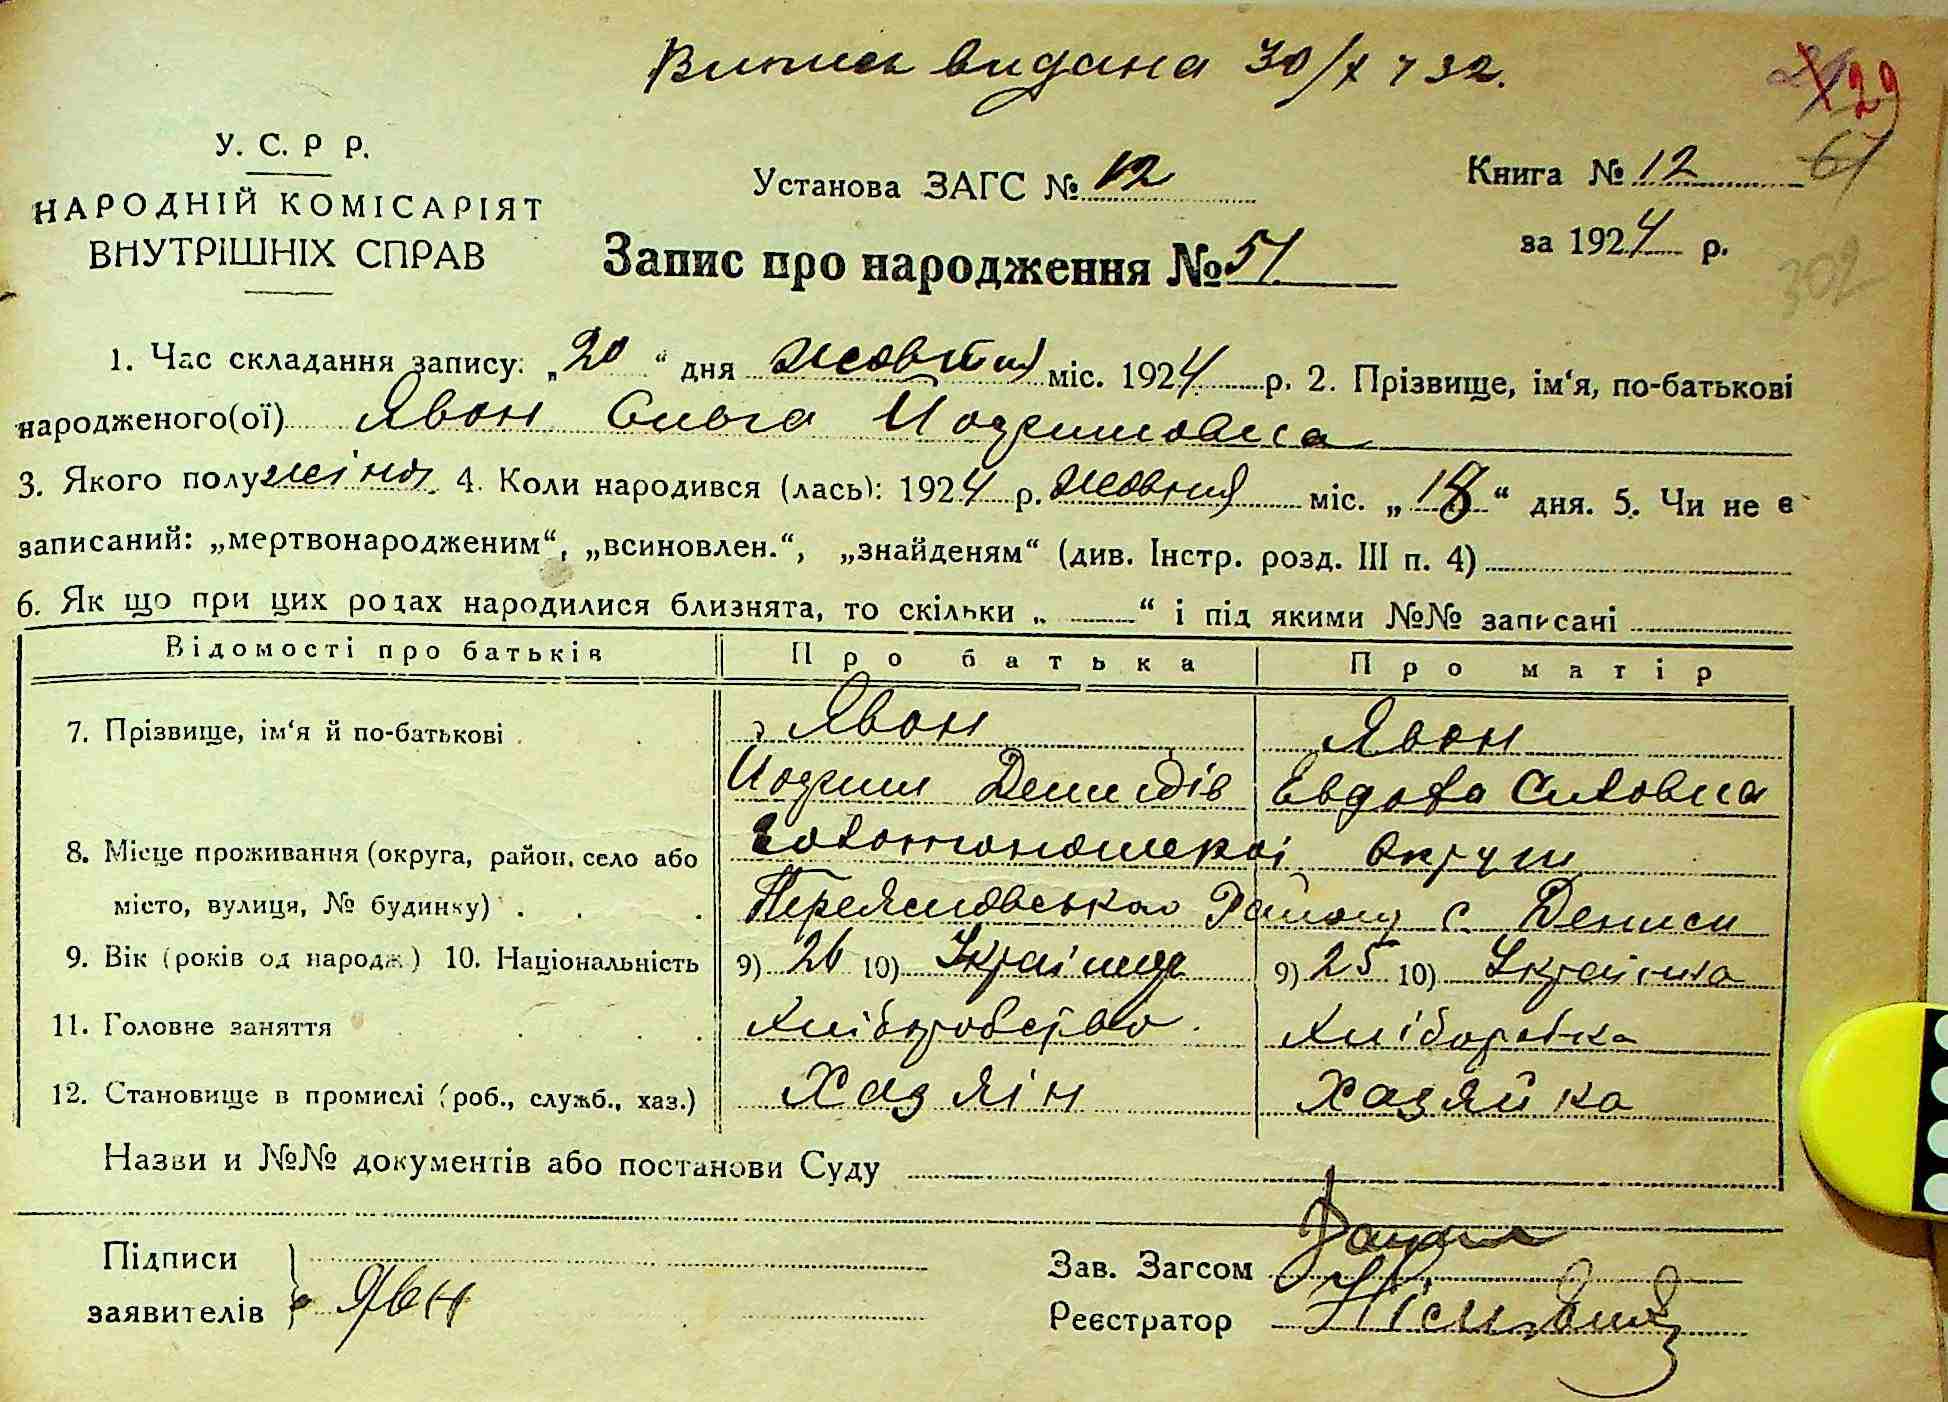 Випись видана 30/X 32.
29
67
302
У. С. Р Р.
НАРОДНІЙ КОМІСАРІЯТ
ВНУТРІШНІХ СПРАВ
Установа ЗАГС № 12
Книга № 12
за 1924 р.
Запис про народження № 51
1. Час складання запису: „20“ дня жовтня міс. 1924 р. 2. Прізвище, ім‘я, по-батькові
народженого(ої) Явон Ольга
3. Якого полу жіноч. 4. Коли народився (лась): 1924 р. жовтня міс. „18“ дня. 5. Чи не є
записаний: „мертвонародженим“, „всиновлен.“, „знайденям“ (див. Інстр. розд. III п. 4)
6. Як що при цих родах народилися близнята, то скільки „ — “ і під якими №№ записані
Відомості про батьків Про батька Про матір
7. Прізвище, ім‘я й по-батькові Явон Явон
Демидів Евдокія
8. Місце проживання (округа, район, село або Золотоношської Округи
місто, вулиця, № будинку) Переяславського Району с. Дениси
9. Вік (років од народж) 10. Національність 9) 26 10) Українець 9) 25 10) Українка
11. Головне заняття Хліборобство. Хліборобка
12. Становище в промислі (роб., служб., хаз.) Хазяін Хазяйка
Назви и №№ документів або постанови Суду
Підписи
заявителів Явон
Зав. Загсом
Реєстратор